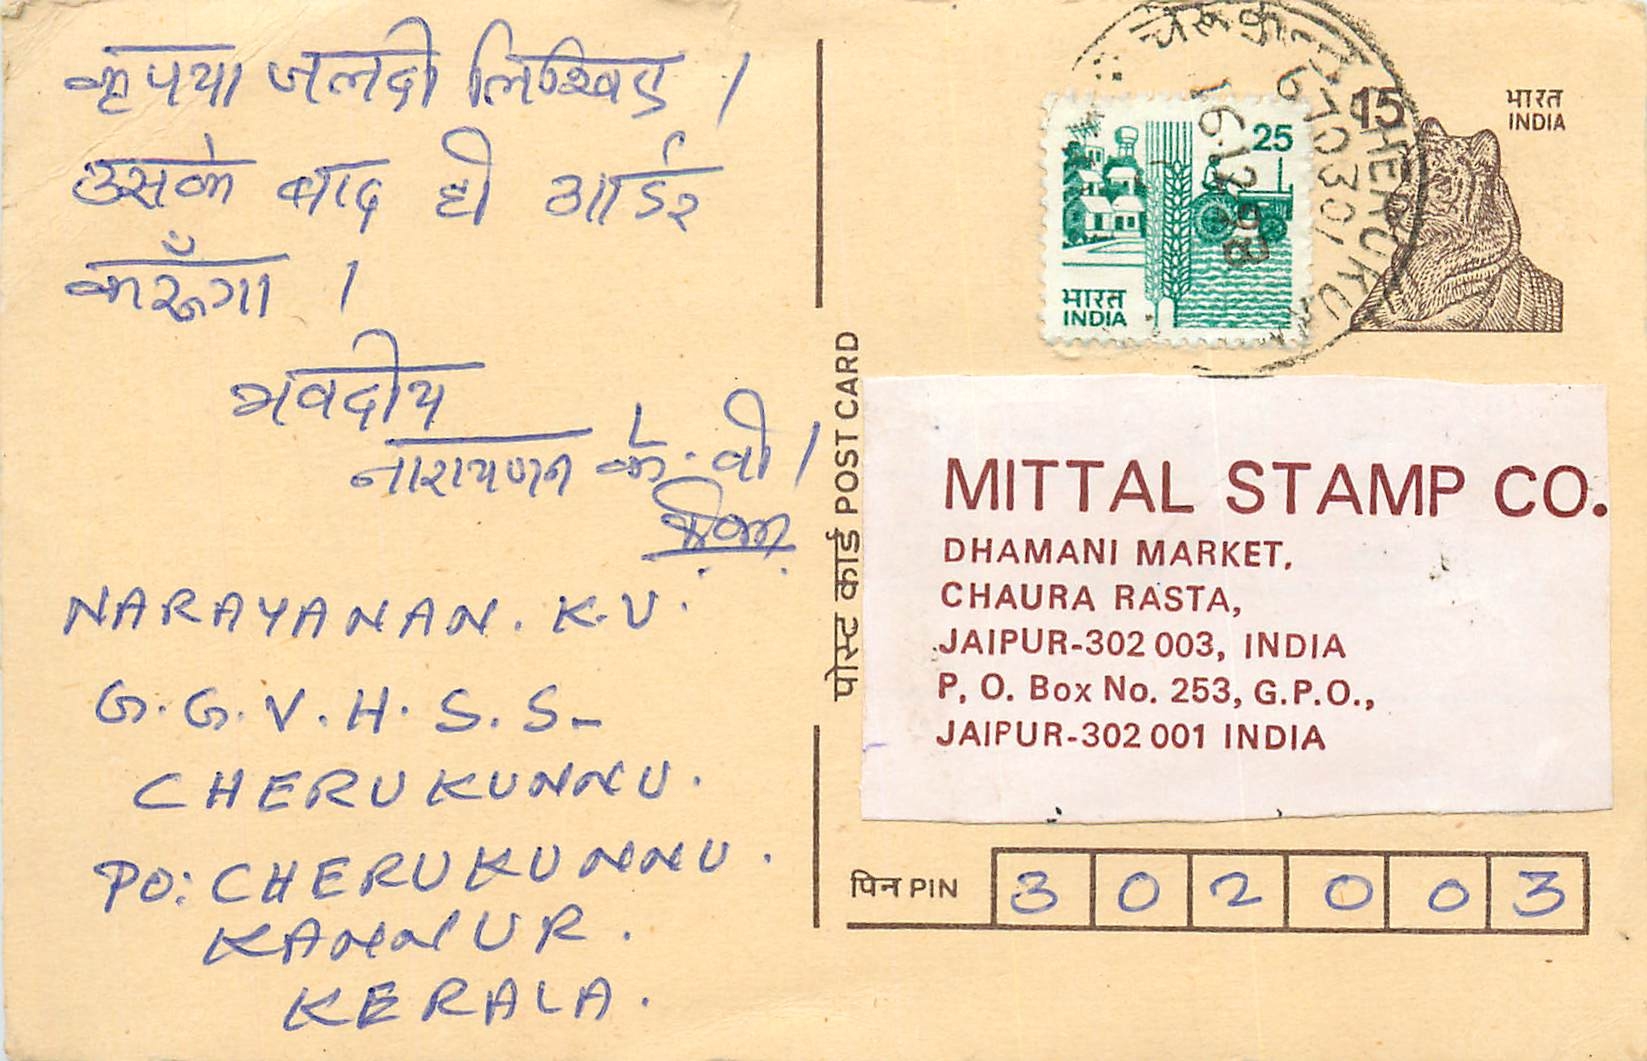 कृपया जलदी लिखिए ।
उसके बाद ही आर्डर
करूँगा ।
भवदीय
नारायणन के. वी ।
NARAYANAN. K.V.
G.G.V.H.S.S-
CHERUKUNNU.
PO: CHERUKUNNU.
KANNUR.
KERALA.
पोस्ट कार्ड POST CARD
CHERUKU
670301
16.12.98
25
भारत
INDIA
15
भारत
INDIA
MITTAL STAMP CO.
DHAMANI MARKET,
CHAURA RASTA,
JAIPUR-302 003, INDIA
P, O. Box No. 253, G.P.O.,
JAIPUR-302 001 INDIA
पिन PIN 302003